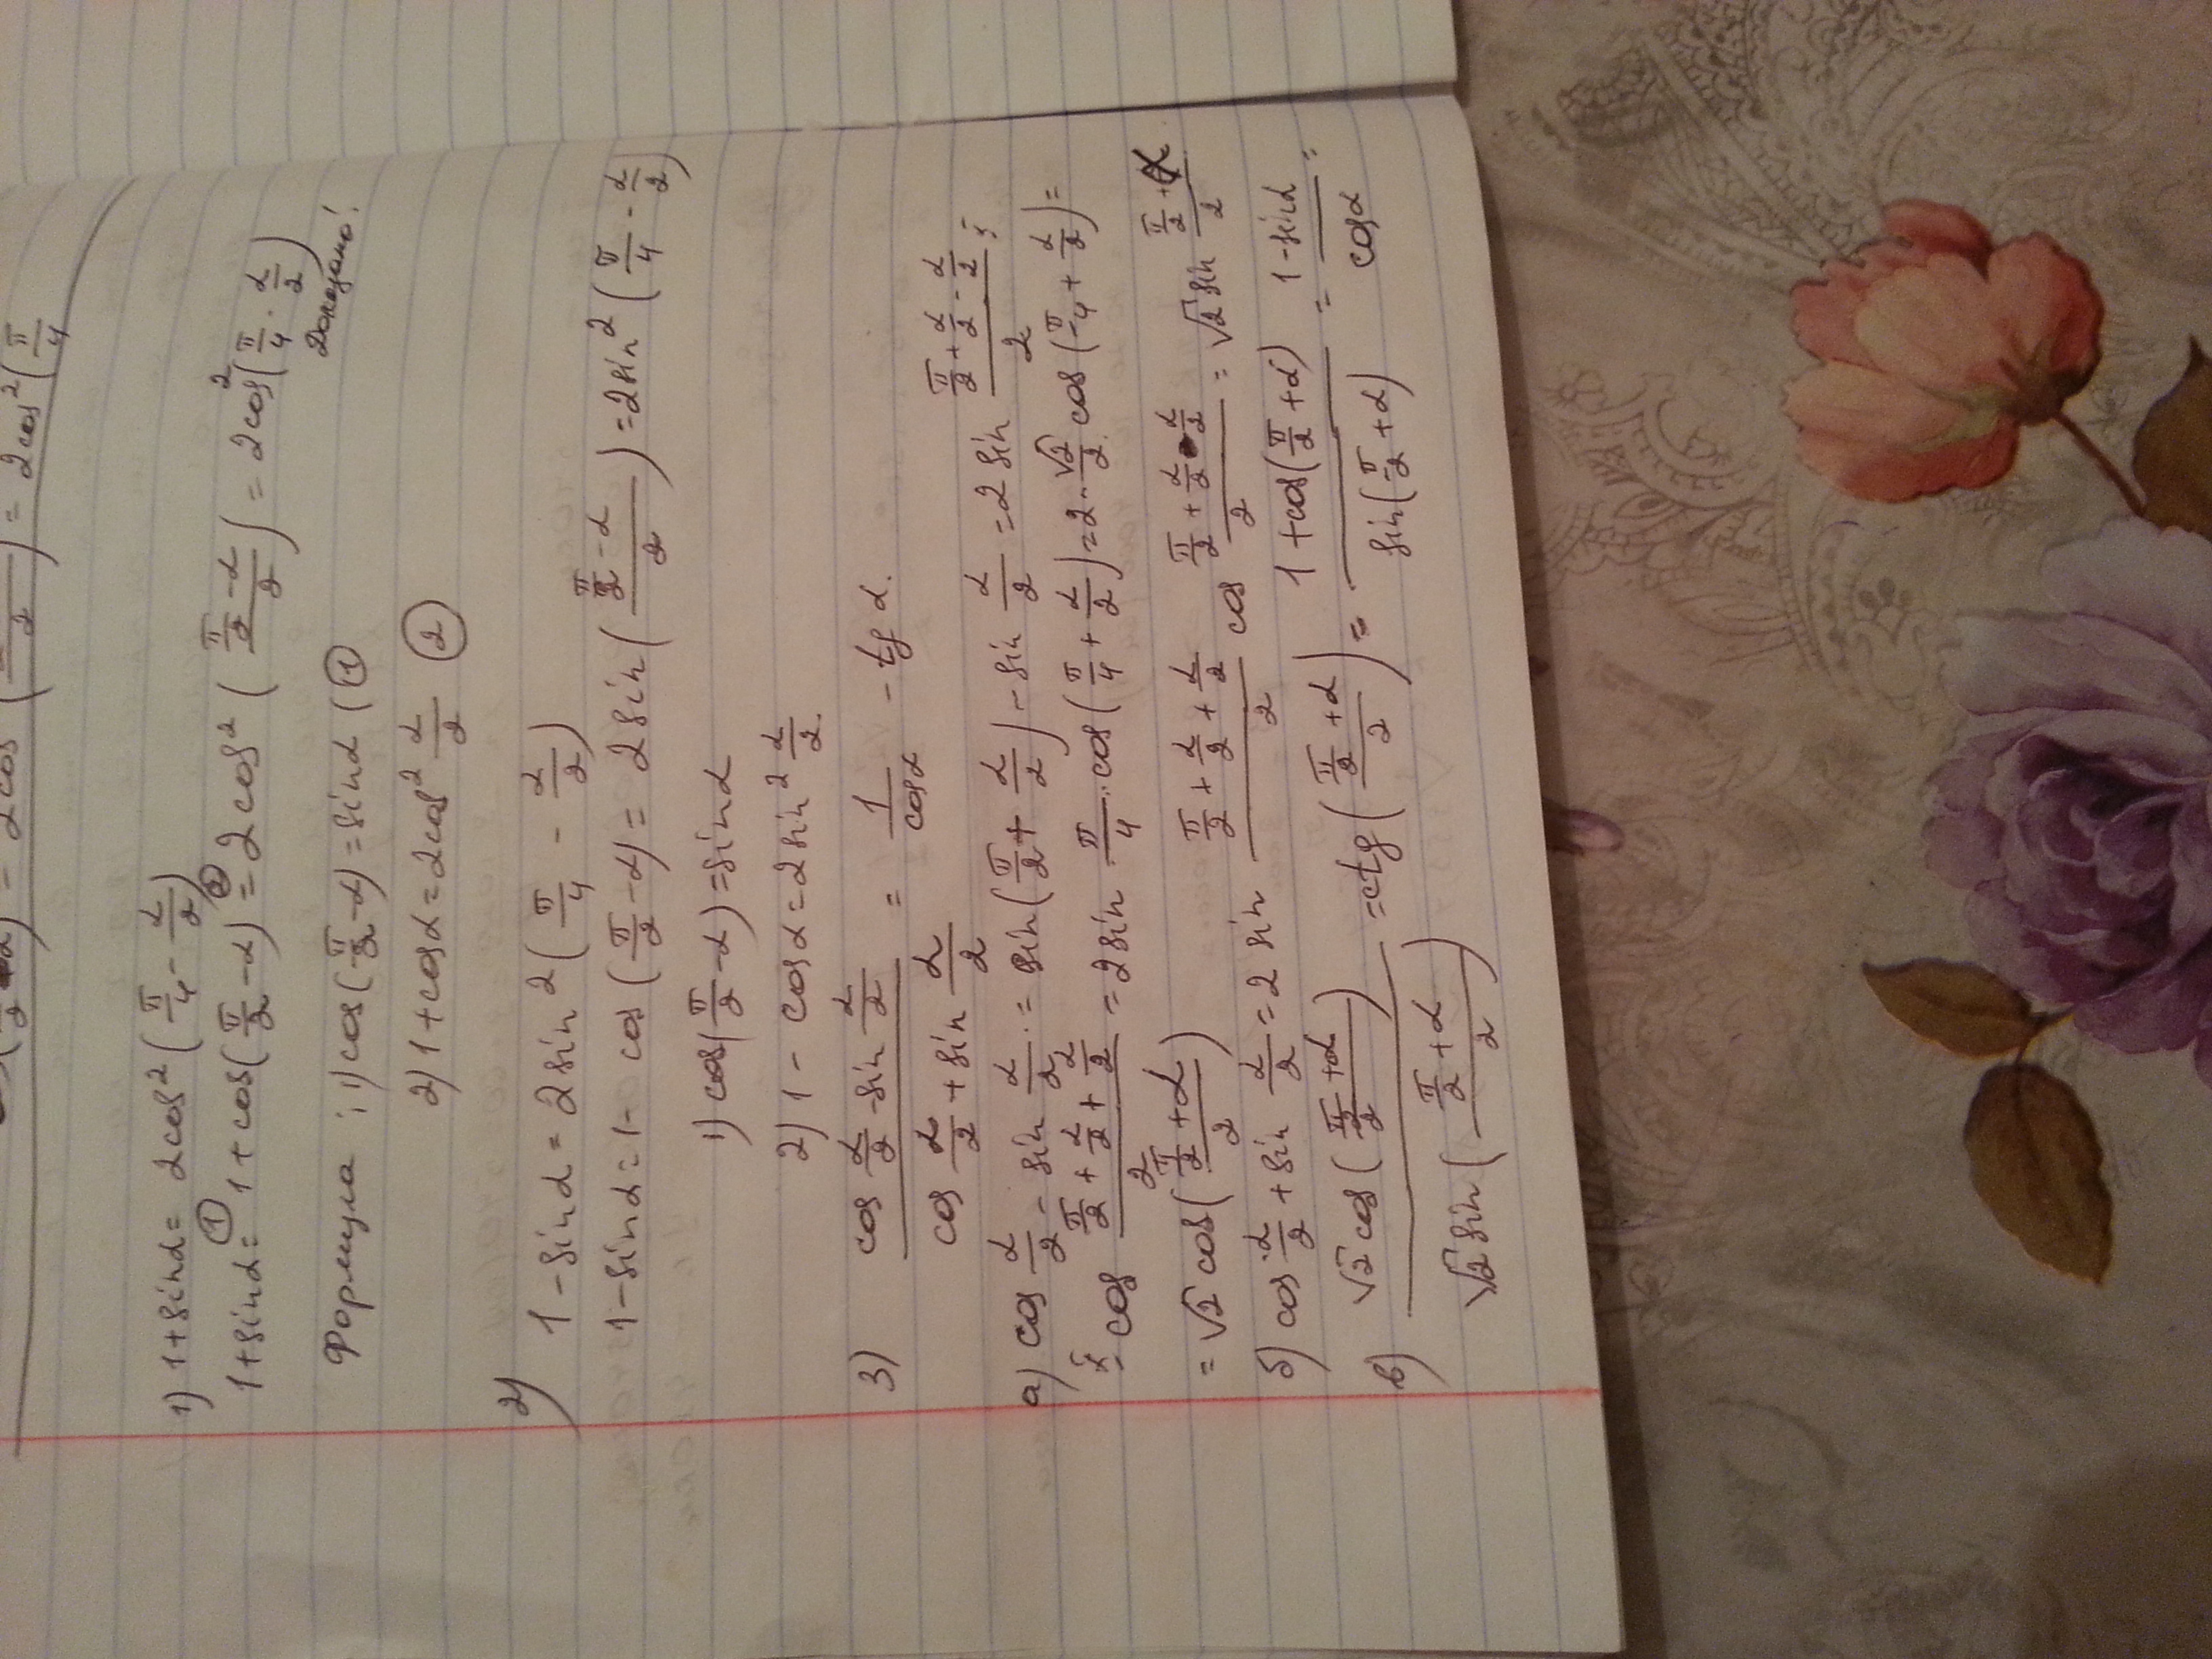 1) 1+sinα = 2cos²(π/4 - α/2)
1+sinα =① 1+cos(π/2 - α) =② 2cos²((π/2 - α)/2) = 2cos²(π/4 - α/2)
Доказано!
Формула: 1) cos(π/2 - α) = sinα ①
2) 1+cosα = 2cos² α/2 ②
2) 1 - sinα = 2sin²(π/4 - α/2)
1 - sinα = 1 - cos(π/2 - α) = 2sin((π/2 - α)/2) = 2sin²(π/4 - α/2)
1) cos(π/2 - α) = sinα
2) 1 - cosα = 2sin² α/2.
3) (cos α/2 - sin α/2)/(cos α/2 + sin α/2) = 1/cosα - tgα.
а) cos α/2 - sin α/2 = sin(π/2 + α/2) - sin α/2 = 2sin (π/2 + α/2 - α/2)/2 ·
· cos (π/2 + α/2 + α/2)/2 = 2sin π/4 · cos(π/4 + α/2) = 2 · √2/2 · cos(π/4 + α/2) =
= √2 cos((π/2 + α)/2)
б) cos α/2 + sin α/2 = 2 sin (π/2 + α/2 + α/2)/2 cos (π/2 + α/2 - α/2)/2 = √2 sin (π/2 + α)/2
в) √2 cos((π/2 + α)/2)/√2 sin((π/2 + α)/2) = ctg((π/2 + α)/2) = (1 + cos(π/2 + α))/sin(π/2 + α) = (1 - sinα)/cosα =